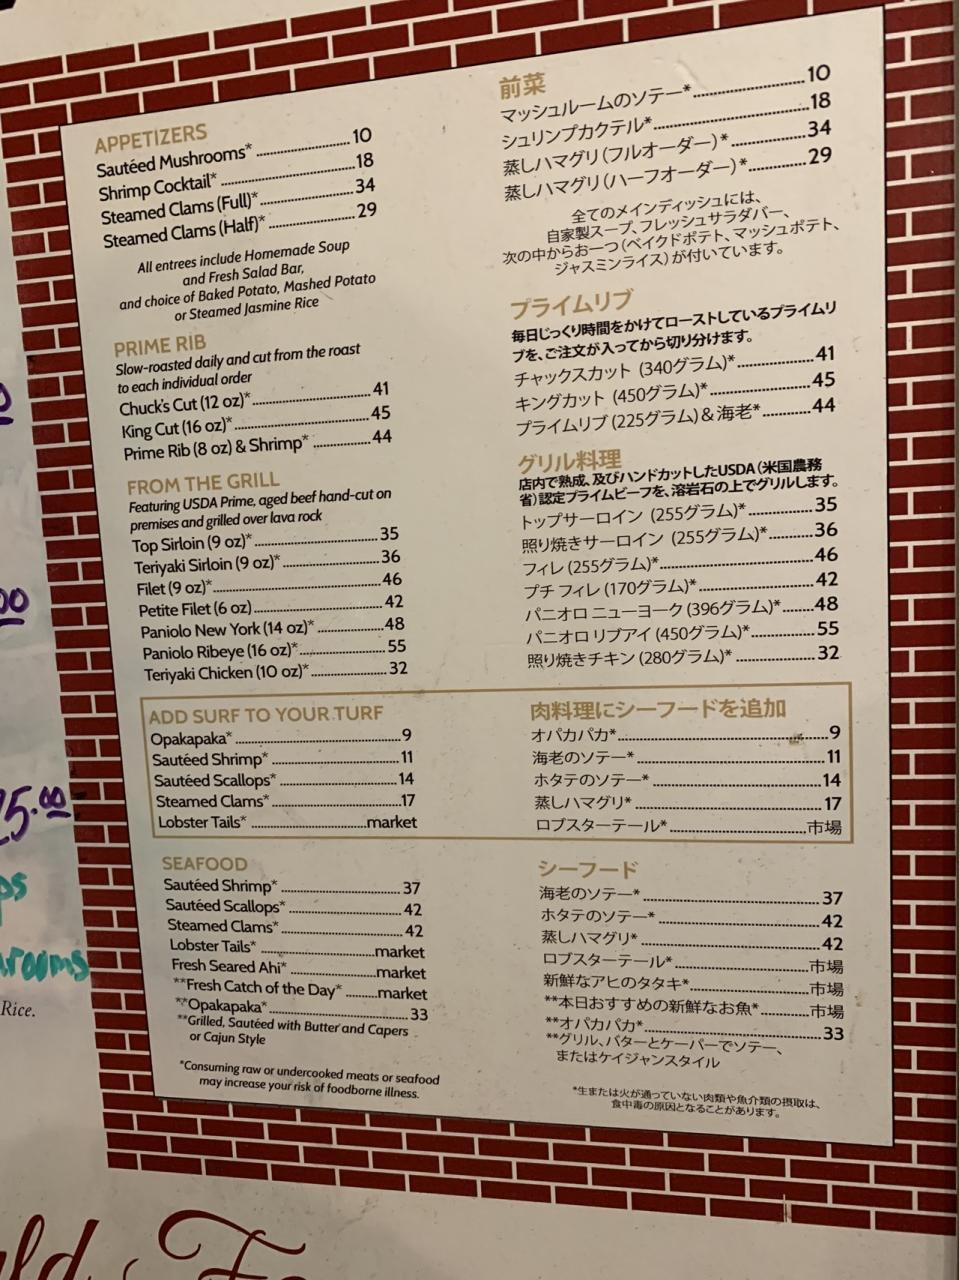 APPETIZERS
Sautéed Mushrooms* 10
Shrimp Cocktail* 18
Steamed Clams (Full)* 34
Steamed Clams (Half)* 29
All entrees include Homemade Soup
and Fresh Salad Bar,
and choice of Baked Potato, Mashed Potato
or Steamed Jasmine Rice
PRIME RIB
Slow-roasted daily and cut from the roast
to each individual order
Chuck's Cut (12 oz)* 41
King Cut (16 oz)* 45
Prime Rib (8 oz) & Shrimp* 44
FROM THE GRILL
Featuring USDA Prime, aged beef hand-cut on
premises and grilled over lava rock
Top Sirloin (9 oz)* 35
Teriyaki Sirloin (9 oz)* 36
Filet (9 oz)* 46
Petite Filet (6 oz) 42
Paniolo New York (14 oz)* 48
Paniolo Ribeye (16 oz)* 55
Teriyaki Chicken (10 oz)* 32
ADD SURF TO YOUR TURF
Opakapaka* 9
Sautéed Shrimp* 11
Sautéed Scallops* 14
Steamed Clams* 17
Lobster Tails* market
SEAFOOD
Sautéed Shrimp* 37
Sautéed Scallops* 42
Steamed Clams* 42
Lobster Tails* market
Fresh Seared Ahi* market
**Fresh Catch of the Day* market
**Opakapaka* 33
**Grilled, Sautéed with Butter and Capers
or Cajun Style
*Consuming raw or undercooked meats or seafood
may increase your risk of foodborne illness.
前菜
マッシュルームのソテー* 10
シュリンプカクテル* 18
蒸しハマグリ(フルオーダー)* 34
蒸しハマグリ(ハーフオーダー)* 29
全てのメインディッシュには、
自家製スープ、フレッシュサラダバー、
次の中からお一つ(ベイクドポテト、マッシュポテト、
ジャスミンライス)が付いています。
プライムリブ
毎日じっくり時間をかけてローストしているプライムリ
ブを、ご注文が入ってから切り分けます。
チャックスカット (340グラム)* 41
キングカット (450グラム)* 45
プライムリブ (225グラム) & 海老* 44
グリル料理
店内で熟成、及びハンドカットしたUSDA(米国農務
省)認定プライムビーフを、溶岩石の上でグリルします。
トップサーロイン (255グラム)* 35
照り焼きサーロイン (255グラム)* 36
フィレ (255グラム)* 46
プチ フィレ (170グラム)* 42
パニオロ ニューヨーク (396グラム)* 48
パニオロ リブアイ (450グラム)* 55
照り焼きチキン (280グラム)* 32
肉料理にシーフードを追加
オパカパカ* 9
海老のソテー* 11
ホタテのソテー* 14
蒸しハマグリ* 17
ロブスターテール* 市場
シーフード
海老のソテー* 37
ホタテのソテー* 42
蒸しハマグリ* 42
ロブスターテール* 市場
新鮮なアヒのタタキ* 市場
**本日おすすめの新鮮なお魚* 市場
**オパカパカ* 33
**グリル、バターとケーパーでソテー、
またはケイジャンスタイル
*生または火が通っていない肉類や魚介類の摂取は、
食中毒の原因となることがあります。
Rice.